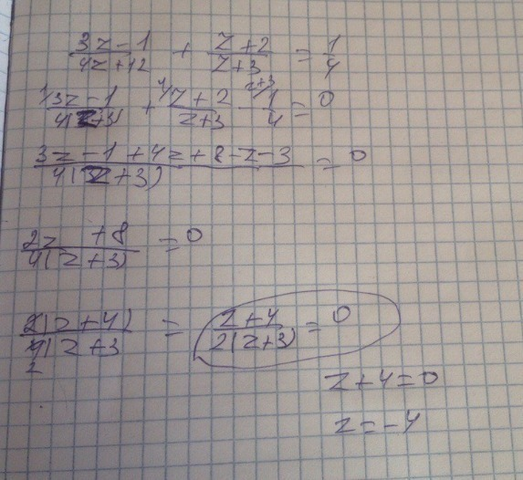 (3z-1)/(4z+12) + (z+2)/(z+3) = 1/4
(3z-1)/(4(z+3)) + (z+2)/(z+3) - 1/4 = 0
(3z-1+4z+8-z-3)/(4(z+3)) = 0
(2z +8)/(4(z+3)) = 0
2(z+4)/4(z+3 2 = (z+4)/(2(z+3)) = 0
z+4=0
z=-4